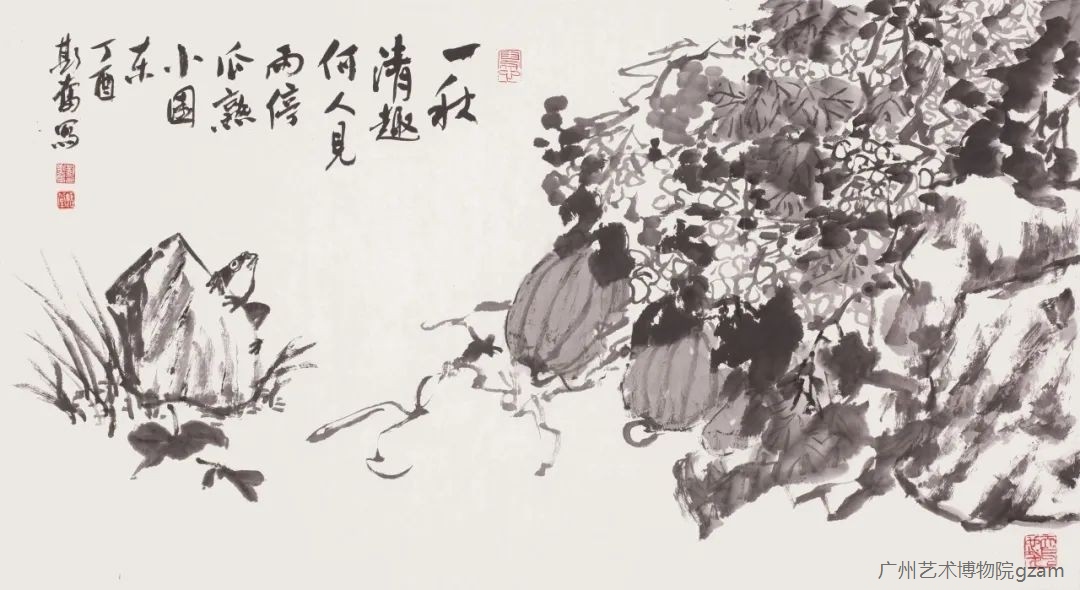 一秋
清趣
何人見
雨停
瓜熟
小園
东
丁酉
斯奮寫
广州艺术博物院gzam